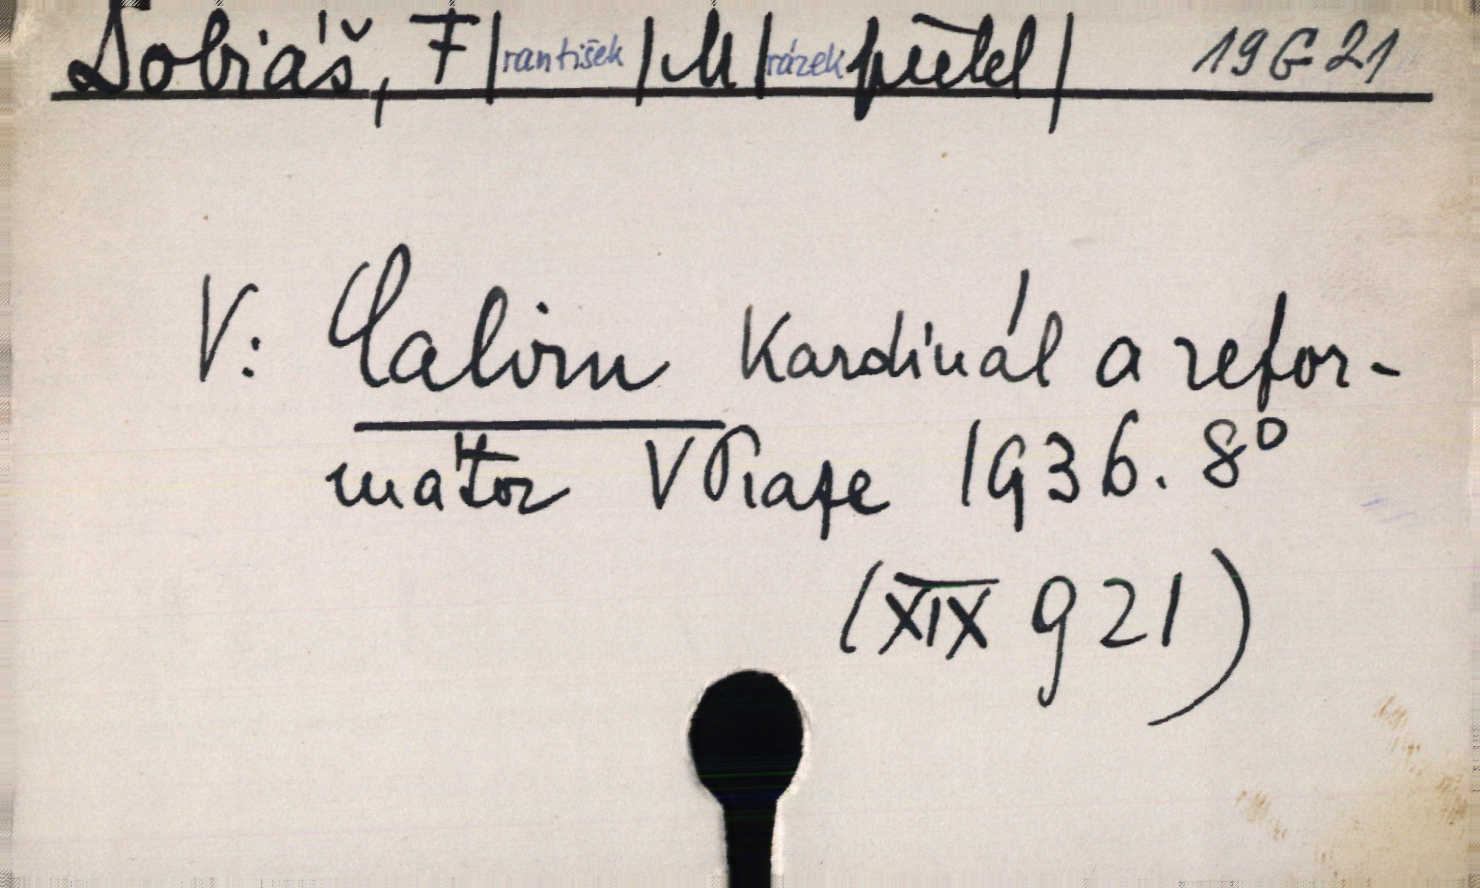 Dobiáš, F|rantišek| M|rázek| přel| 19 G 21
V: Calvin Kardinál a refor-
mátor V Praze 1936. 8°
(XIX g 21)